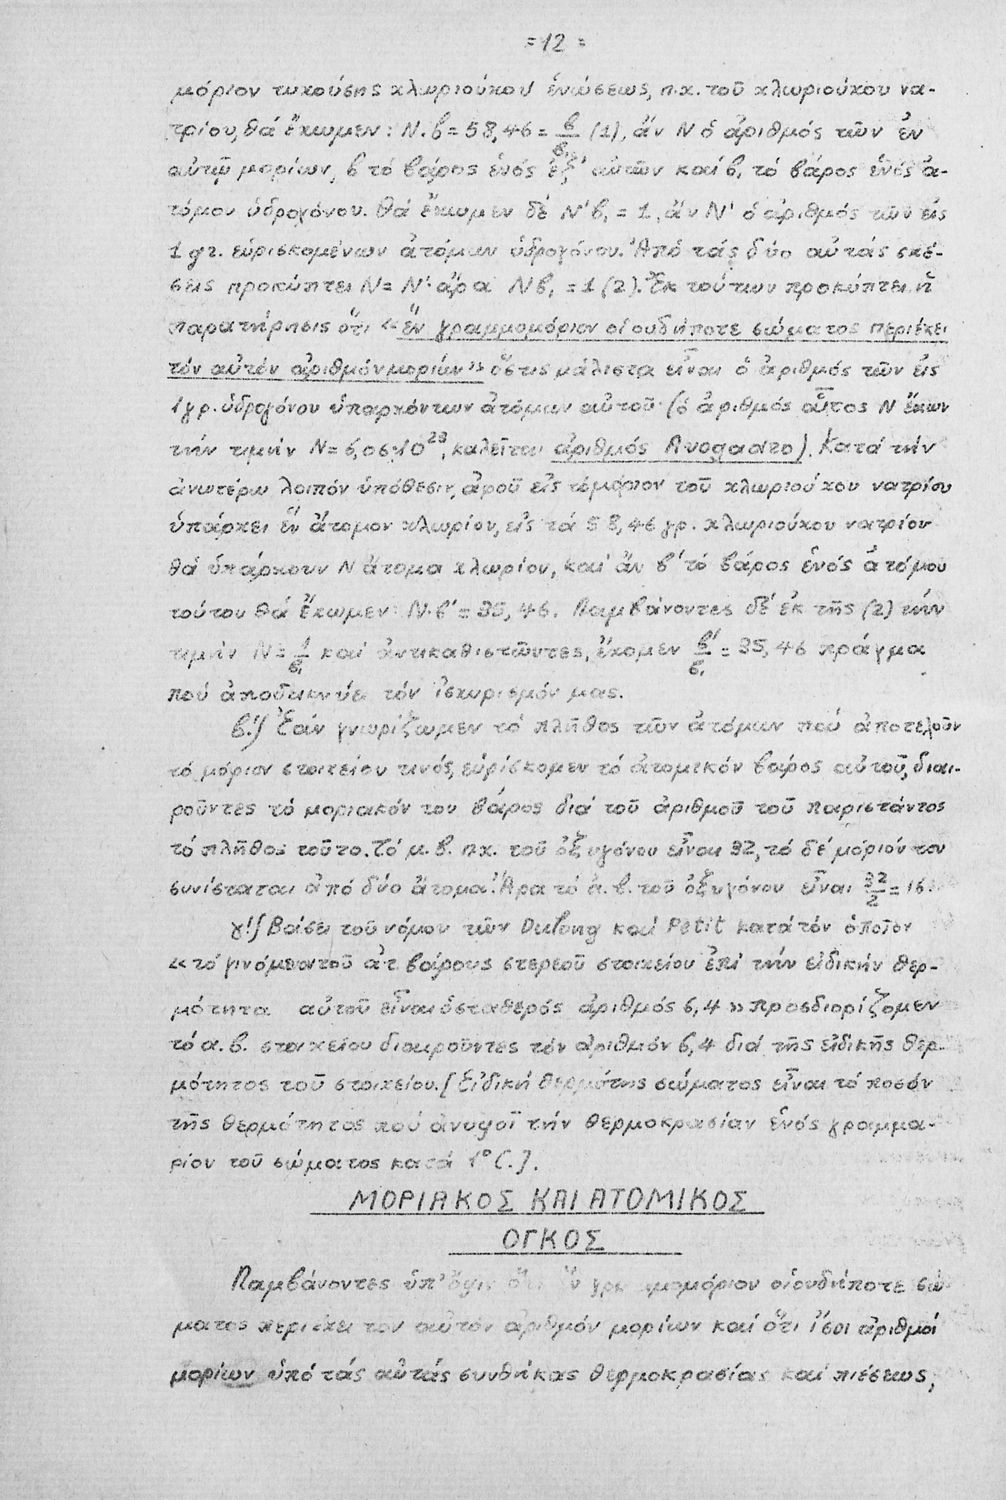 =12=
μόριον τυχούσης χλωριούχου ἑνώσεως, π.χ. τοῦ χλωριούχου να-
τρίου, θά ἔχωμεν: Ν.β=58,46=β/β₁ (1), ἄν Ν ὁ ἀριθμός τῶν ἐν
αὐτῷ μορίων, β τό βάρος ἑνός ἐξ' αὐτῶν καί β₁ τό βάρος ἑνός ἀ-
τόμου ὑδρογόνου. Θά ἔχωμεν δέ Ν'β₁ = 1, ἄν Ν' ὁ ἀριθμός τῶν εἰς
1 gr. εὑρισκομένων ἀτόμων ὑδρογόνου. Ἀπό τάς δύο αὐτάς σχέ-
σεις προκύπτει Ν=Ν' ἄρα Νβ₁ =1 (2). Ἐκ τούτων προκύπτει ἡ
παρατήρησις ὅτι «ἕν γραμμομόριον οἱουδήποτε σώματος περιέχει
τόν αὐτόν ἀριθμόν μορίων» ὅστις μάλιστα εἶναι ὁ ἀριθμός τῶν εἰς
1 γρ. ὑδρογόνου ὑπαρχόντων ἀτόμων αὐτοῦ (ὁ ἀριθμός οὗτος Ν ἔχων
τήν τιμήν Ν=6,06.10²³, καλεῖται ἀριθμός Avogadro). Κατά τήν
ἀνωτέρω λοιπόν ὑπόθεσιν, ἀφοῦ εἰς τό μόριον τοῦ χλωριούχου νατρίου
ὑπάρχει ἕν ἄτομον χλωρίου, εἰς τά 58,46 γρ. χλωριούχου νατρίου
θά ὑπάρχουν Ν ἄτομα χλωρίου, καί ἄν β' τό βάρος ἑνός ἀτόμου
τούτου θά ἔχωμεν Ν.β'=35,46. Λαμβάνοντες δέ ἐκ τῆς (2) τήν
τιμήν Ν=1/β₁ καί ἀντικαθιστῶντες, ἔχομεν β'/β₁ =35,46 πράγμα
πού ἀποδεικνύει τόν ἰσχυρισμόν μας.
β'.) Ἐάν γνωρίζωμεν τό πλῆθος τῶν ἀτόμων πού ἀποτελοῦν
τό μόριον στοιχείου τινός, εὑρίσκομεν τό ἀτομικόν βάρος αὐτοῦ, διαι-
ροῦντες τό μοριακόν του βάρος διά τοῦ ἀριθμοῦ τοῦ παριστάντος
τό πλῆθος τοῦτο. Τό μ.β. πχ. τοῦ ὀξυγόνου εἶναι 32, τό δέ μόριόν του
συνίσταται ἀπό δύο ἄτομα. Ἄρα τό ἀ.β. τοῦ ὀξυγόνου εἶναι 32/2=16
γ'.) Βάσει τοῦ νόμου τῶν Dulong καί Petit κατά τόν ὁποῖον
«τό γινόμενον τοῦ ἀτ. βάρους στερεοῦ στοιχείου ἐπί τήν εἰδικήν θερ-
μότητα αὐτοῦ εἶναι ὁ σταθερός ἀριθμός 6,4» προσδιορίζομεν
τό α.β. στοιχείου διαιροῦντες τόν ἀριθμόν 6,4 διά τῆς εἰδικῆς θερ-
μότητος τοῦ στοιχείου. [Εἰδική θερμότης σώματος εἶναι τό ποσόν
τῆς θερμότητος πού ἀνυψοῖ τήν θερμοκρασίαν ἑνός γραμμα-
ρίου τοῦ σώματος κατά 1°C.].
ΜΟΡΙΑΚΟΣ ΚΑΙ ΑΤΟΜΙΚΟΣ
ΟΓΚΟΣ
Λαμβάνοντες ὑπ' ὄψιν ὅτι ἕν γραμμομόριον οἱουδήποτε σώ-
ματος περιέχει τόν αὐτόν ἀριθμόν μορίων καί ὅτι ἴσοι ἀριθμοί
μορίων ὑπό τάς αὐτάς συνθήκας θερμοκρασίας καί πιέσεως,